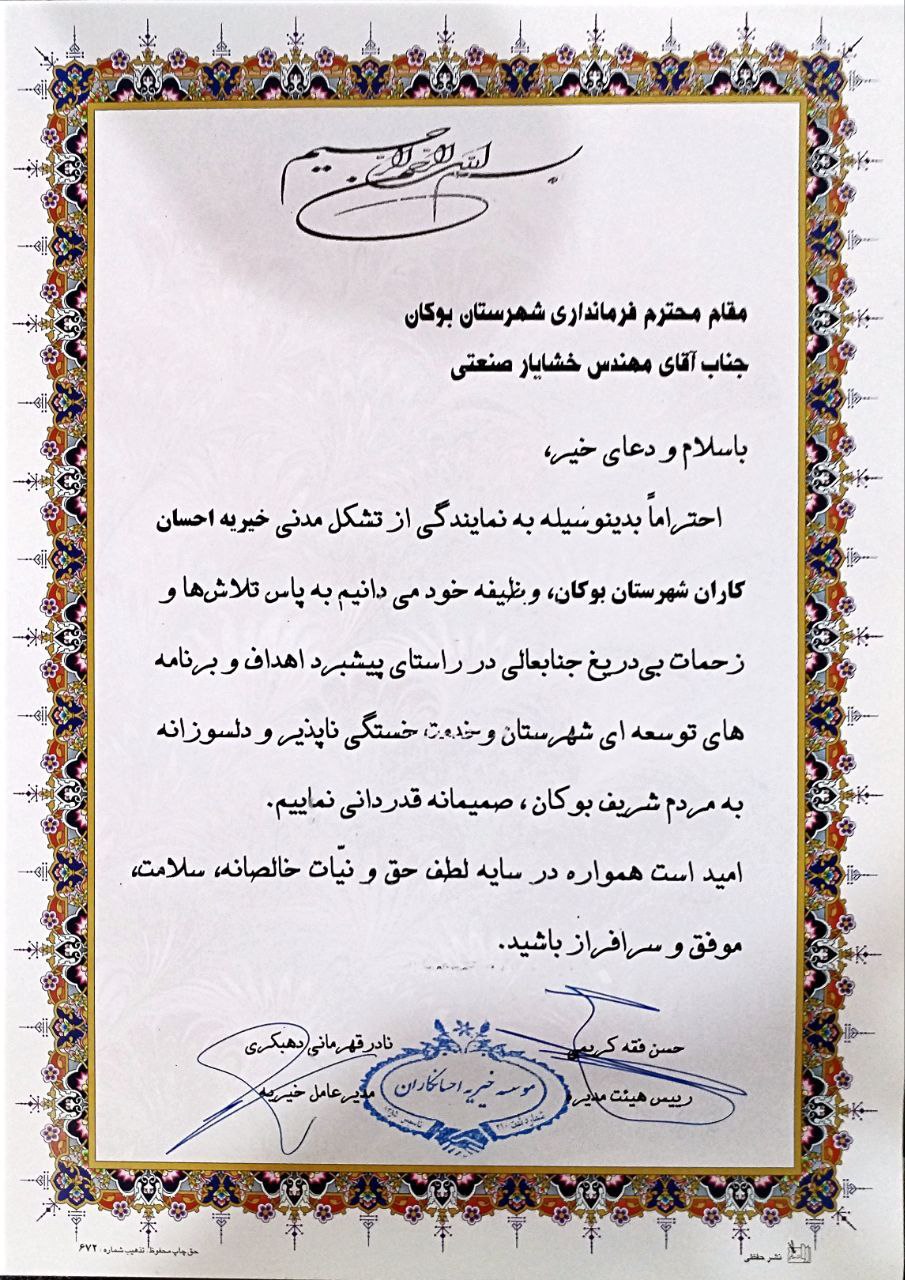 بسم الله الرحمن الرحیم
مقام محترم فرمانداری شهرستان بوکان
جناب آقای مهندس خشایار صنعتی
باسلام و دعای خیر،
احتراماً بدینوسیله به نمایندگی از تشکل مدنی خیریه احسان
کاران شهرستان بوکان، وظیفه خود می دانیم به پاس تلاش‌ها و
زحمات بی‌دریغ جنابعالی در راستای پیشبرد اهداف و برنامه
های توسعه ای شهرستان و خدمت خستگی ناپذیر و دلسوزانه
به مردم شریف بوکان، صمیمانه قدردانی نماییم.
امید است همواره در سایه لطف حق و نیّات خالصانه، سلامت،
موفق و سرافراز باشید.
حسن فقه کریمی
رییس هیئت مدیره
نادر قهرمانی دهبکری
مدیرعامل خیریه
موسسه خیریه احسانکاران
شماره ثبت
تاسس
نشر حفظی
حق چاپ محفوظ، تذهیب شماره: ۶۷۲